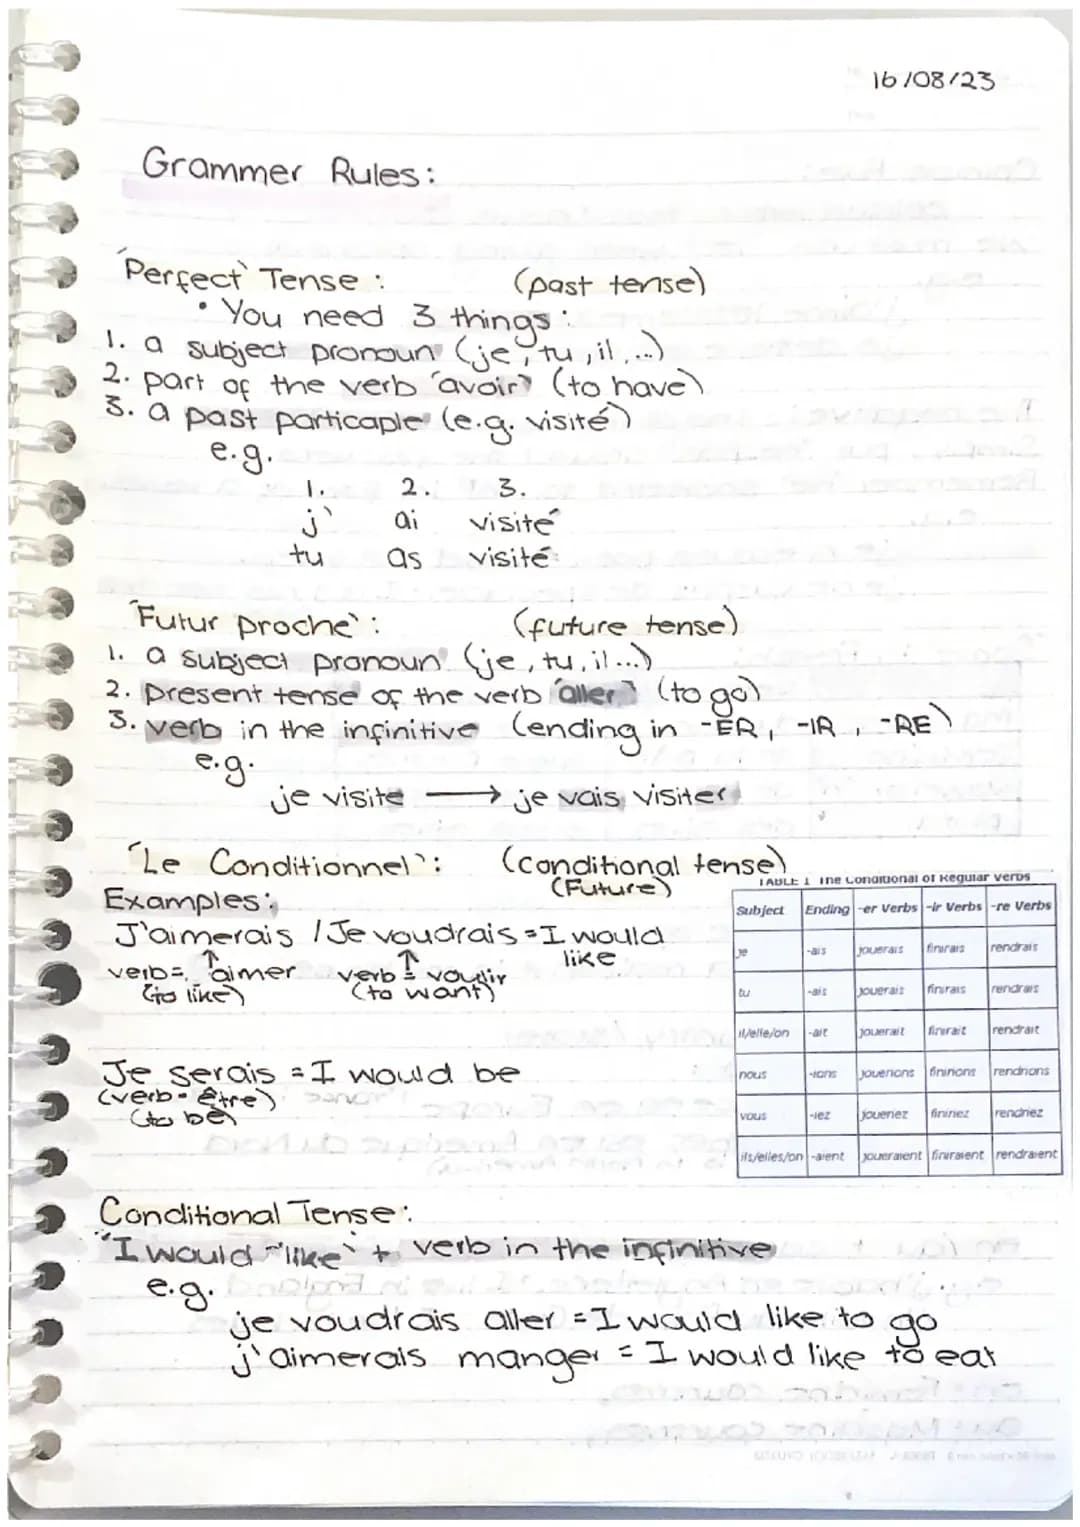 16/08/23
Grammer Rules:
'Perfect' Tense: (past tense)
• You need 3 things:
1. a subject pronoun (je, tu, il, ...)
2. part of the verb 'avoir' (to have)
3. a past particaple (e.g. visité)
e.g.
1. 2. 3.
j' ai visité
tu as visité
'Futur proche': (future tense)
1. a subject pronoun (je, tu, il...)
2. present tense of the verb 'aller' (to go)
3. verb in the infinitive (ending in -ER, -IR, -RE)
e.g.
je visite → je vais visiter
'Le Conditionnel': (conditional tense)
(Future)
Examples:
J'aimerais / Je voudrais = I would
like
verb = aimer verb = voulir
(to like) (to want)
Je serais = I would be
(verb = être)
(to be)
TABLE 1 The Conditional of Regular Verbs
Subject Ending -er Verbs -ir Verbs -re Verbs
je -ais jouerais finirais rendrais
tu -ais jouerais finirais rendrais
il/elle/on -ait jouerait finirait rendrait
nous -ions jouerions finirions rendrions
vous -iez joueriez finiriez rendriez
ils/elles/on -aient joueraient finiraient rendraient
Conditional Tense:
"I would 'like' + verb in the infinitive
e.g.
je voudrais aller = I would like to go
j'aimerais manger = I would like to eat